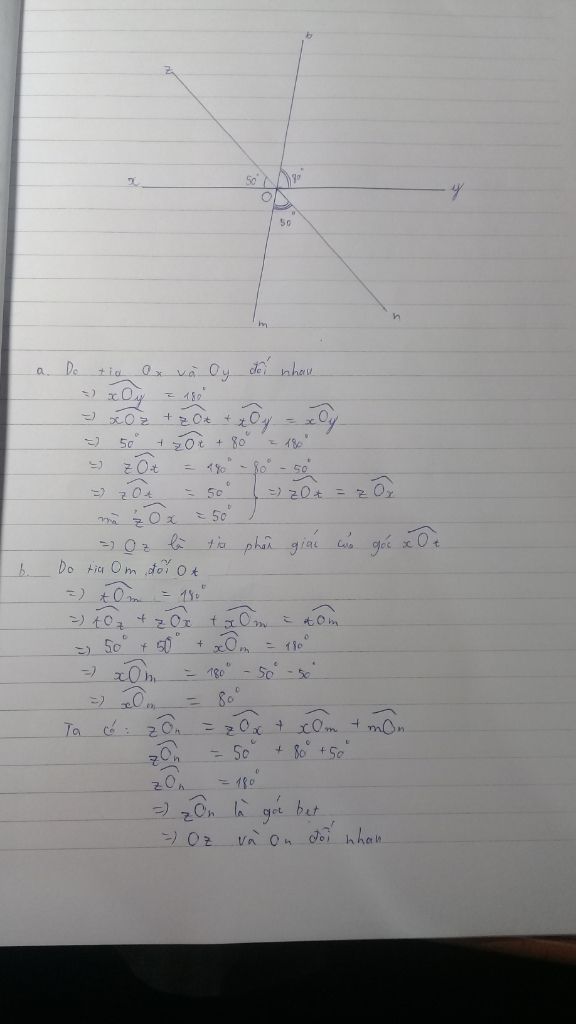 t
z
x
50°
80°
y
O
50°
m
n
a. Do tia Ox và Oy đối nhau
=> xOy = 180°
=> xOz + zOt + tOy = xOy
=> 50° + zOt + 80° = 180°
=> zOt = 180° - 80° - 50°
=> zOt = 50° } => zOt = zOx
mà zOx = 50°
=> Oz là tia phân giác của góc xOt
b. Do tia Om đối Ot
=> tOm = 180°
=> tOz + zOx + xOm = tOm
=> 50° + 50° + xOm = 180°
=> xOm = 180° - 50° - 50°
=> xOm = 80°
Ta có: zOn = zOx + xOm + mOn
zOn = 50° + 80° + 50°
zOn = 180°
=> zOn là góc bẹt
=> Oz và On đối nhau